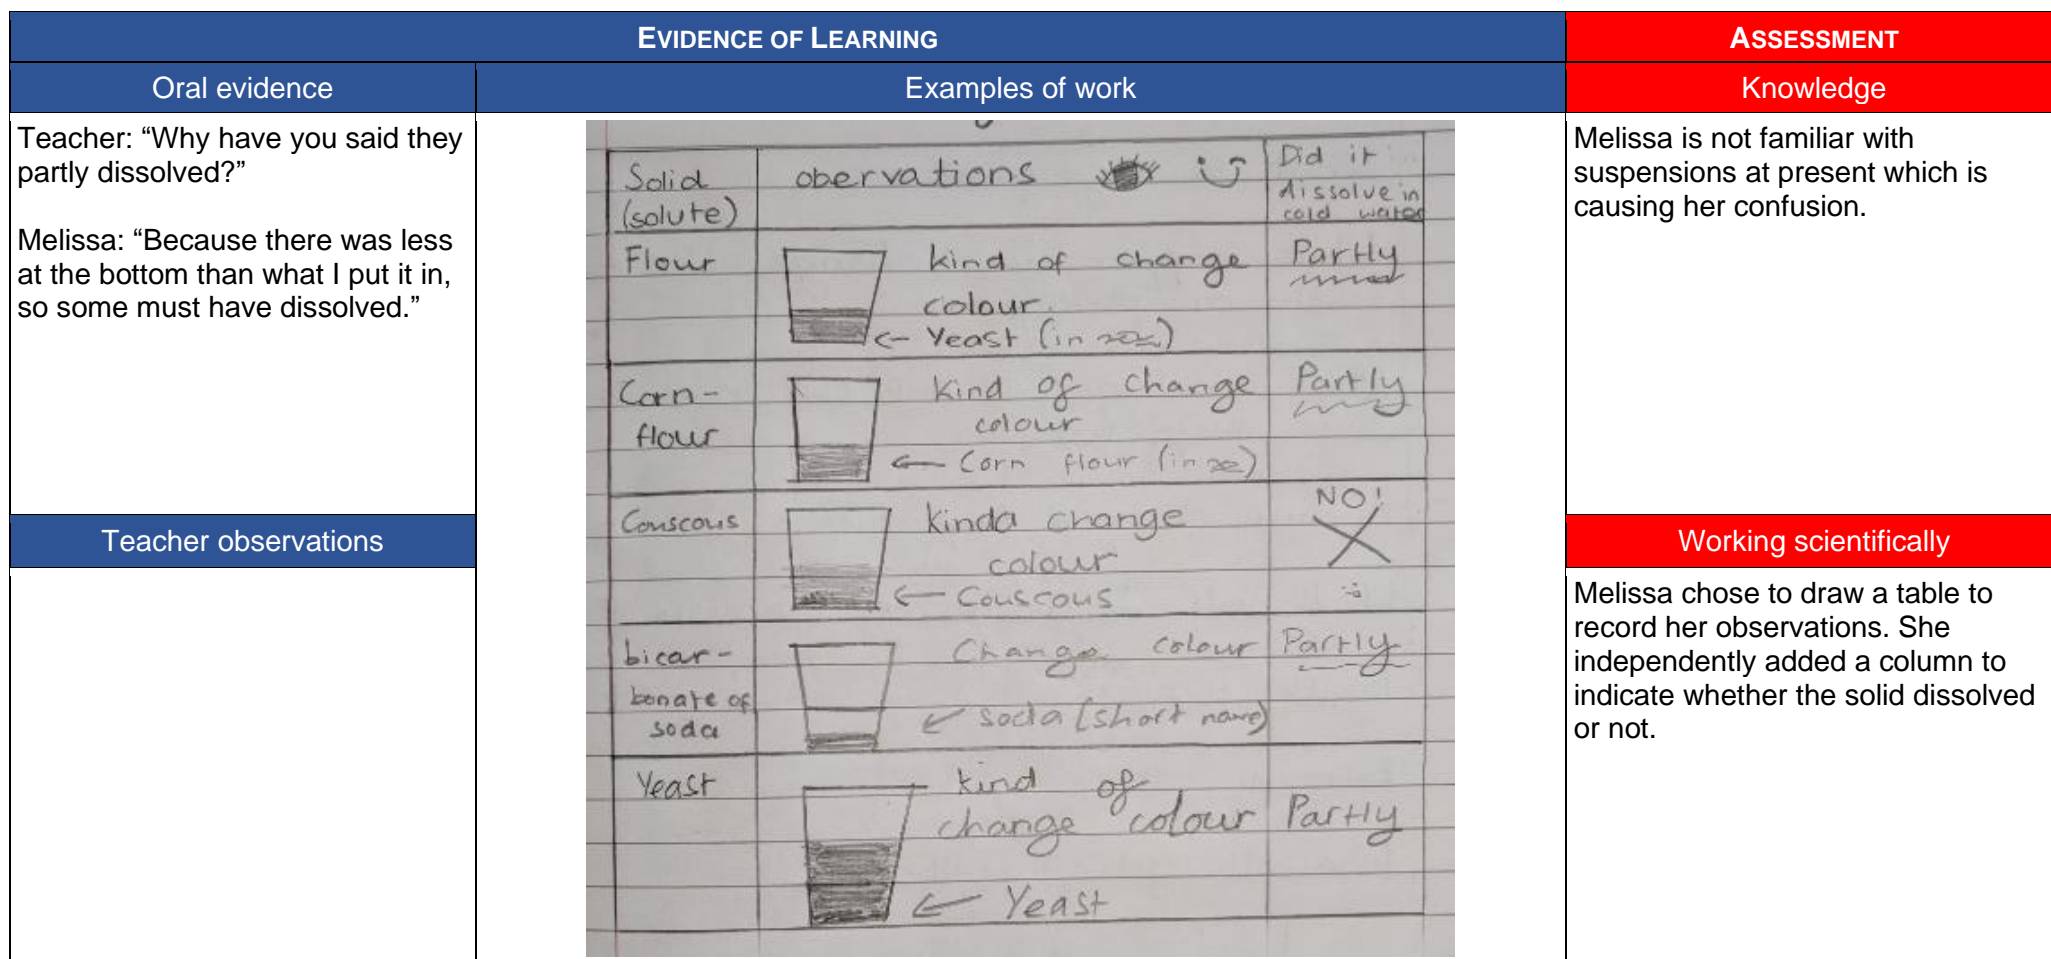 EVIDENCE OF LEARNING
ASSESSMENT
Oral evidence
Examples of work
Knowledge
Teacher: “Why have you said they
partly dissolved?”
Melissa: “Because there was less
at the bottom than what I put it in,
so some must have dissolved.”
Teacher observations
Solid
(solute)
obervations
Did it
dissolve in
cold water
Flour
kind of change
colour.
← Yeast (in
Partly
Corn-
flour
kind of change
colour
← Corn flour (in
Partly
Couscous
kinda change
colour
← Couscous
NO!
bicar-
bonate of
soda
Change colour
← soda (short name)
Partly
Yeast
kind of
change colour
← Yeast
Partly
Melissa is not familiar with
suspensions at present which is
causing her confusion.
Working scientifically
Melissa chose to draw a table to
record her observations. She
independently added a column to
indicate whether the solid dissolved
or not.